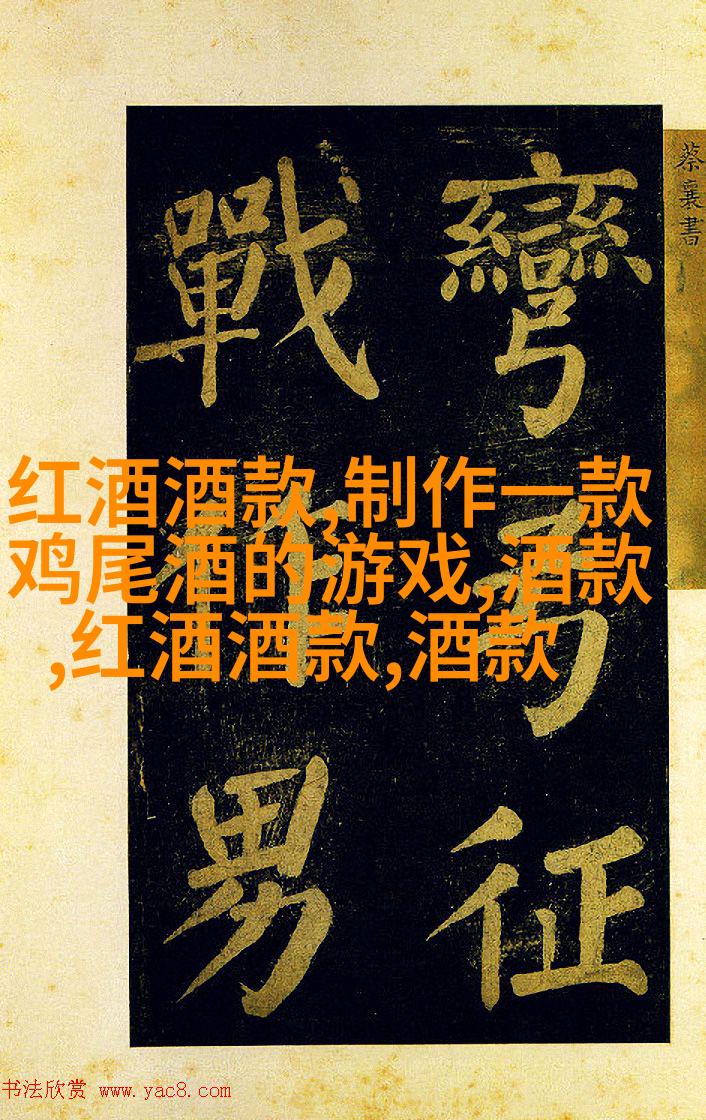 蔡襄書
彎弓征
戰作男
红酒酒款,制作一款
鸡尾酒的游戏,酒款
,红酒酒款,酒款
书法欣赏 www.yac8.com